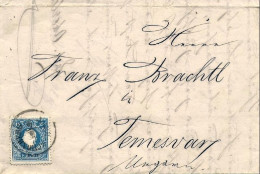 Herrn
Franz Brachtl
à
Temesvar
Ungarn